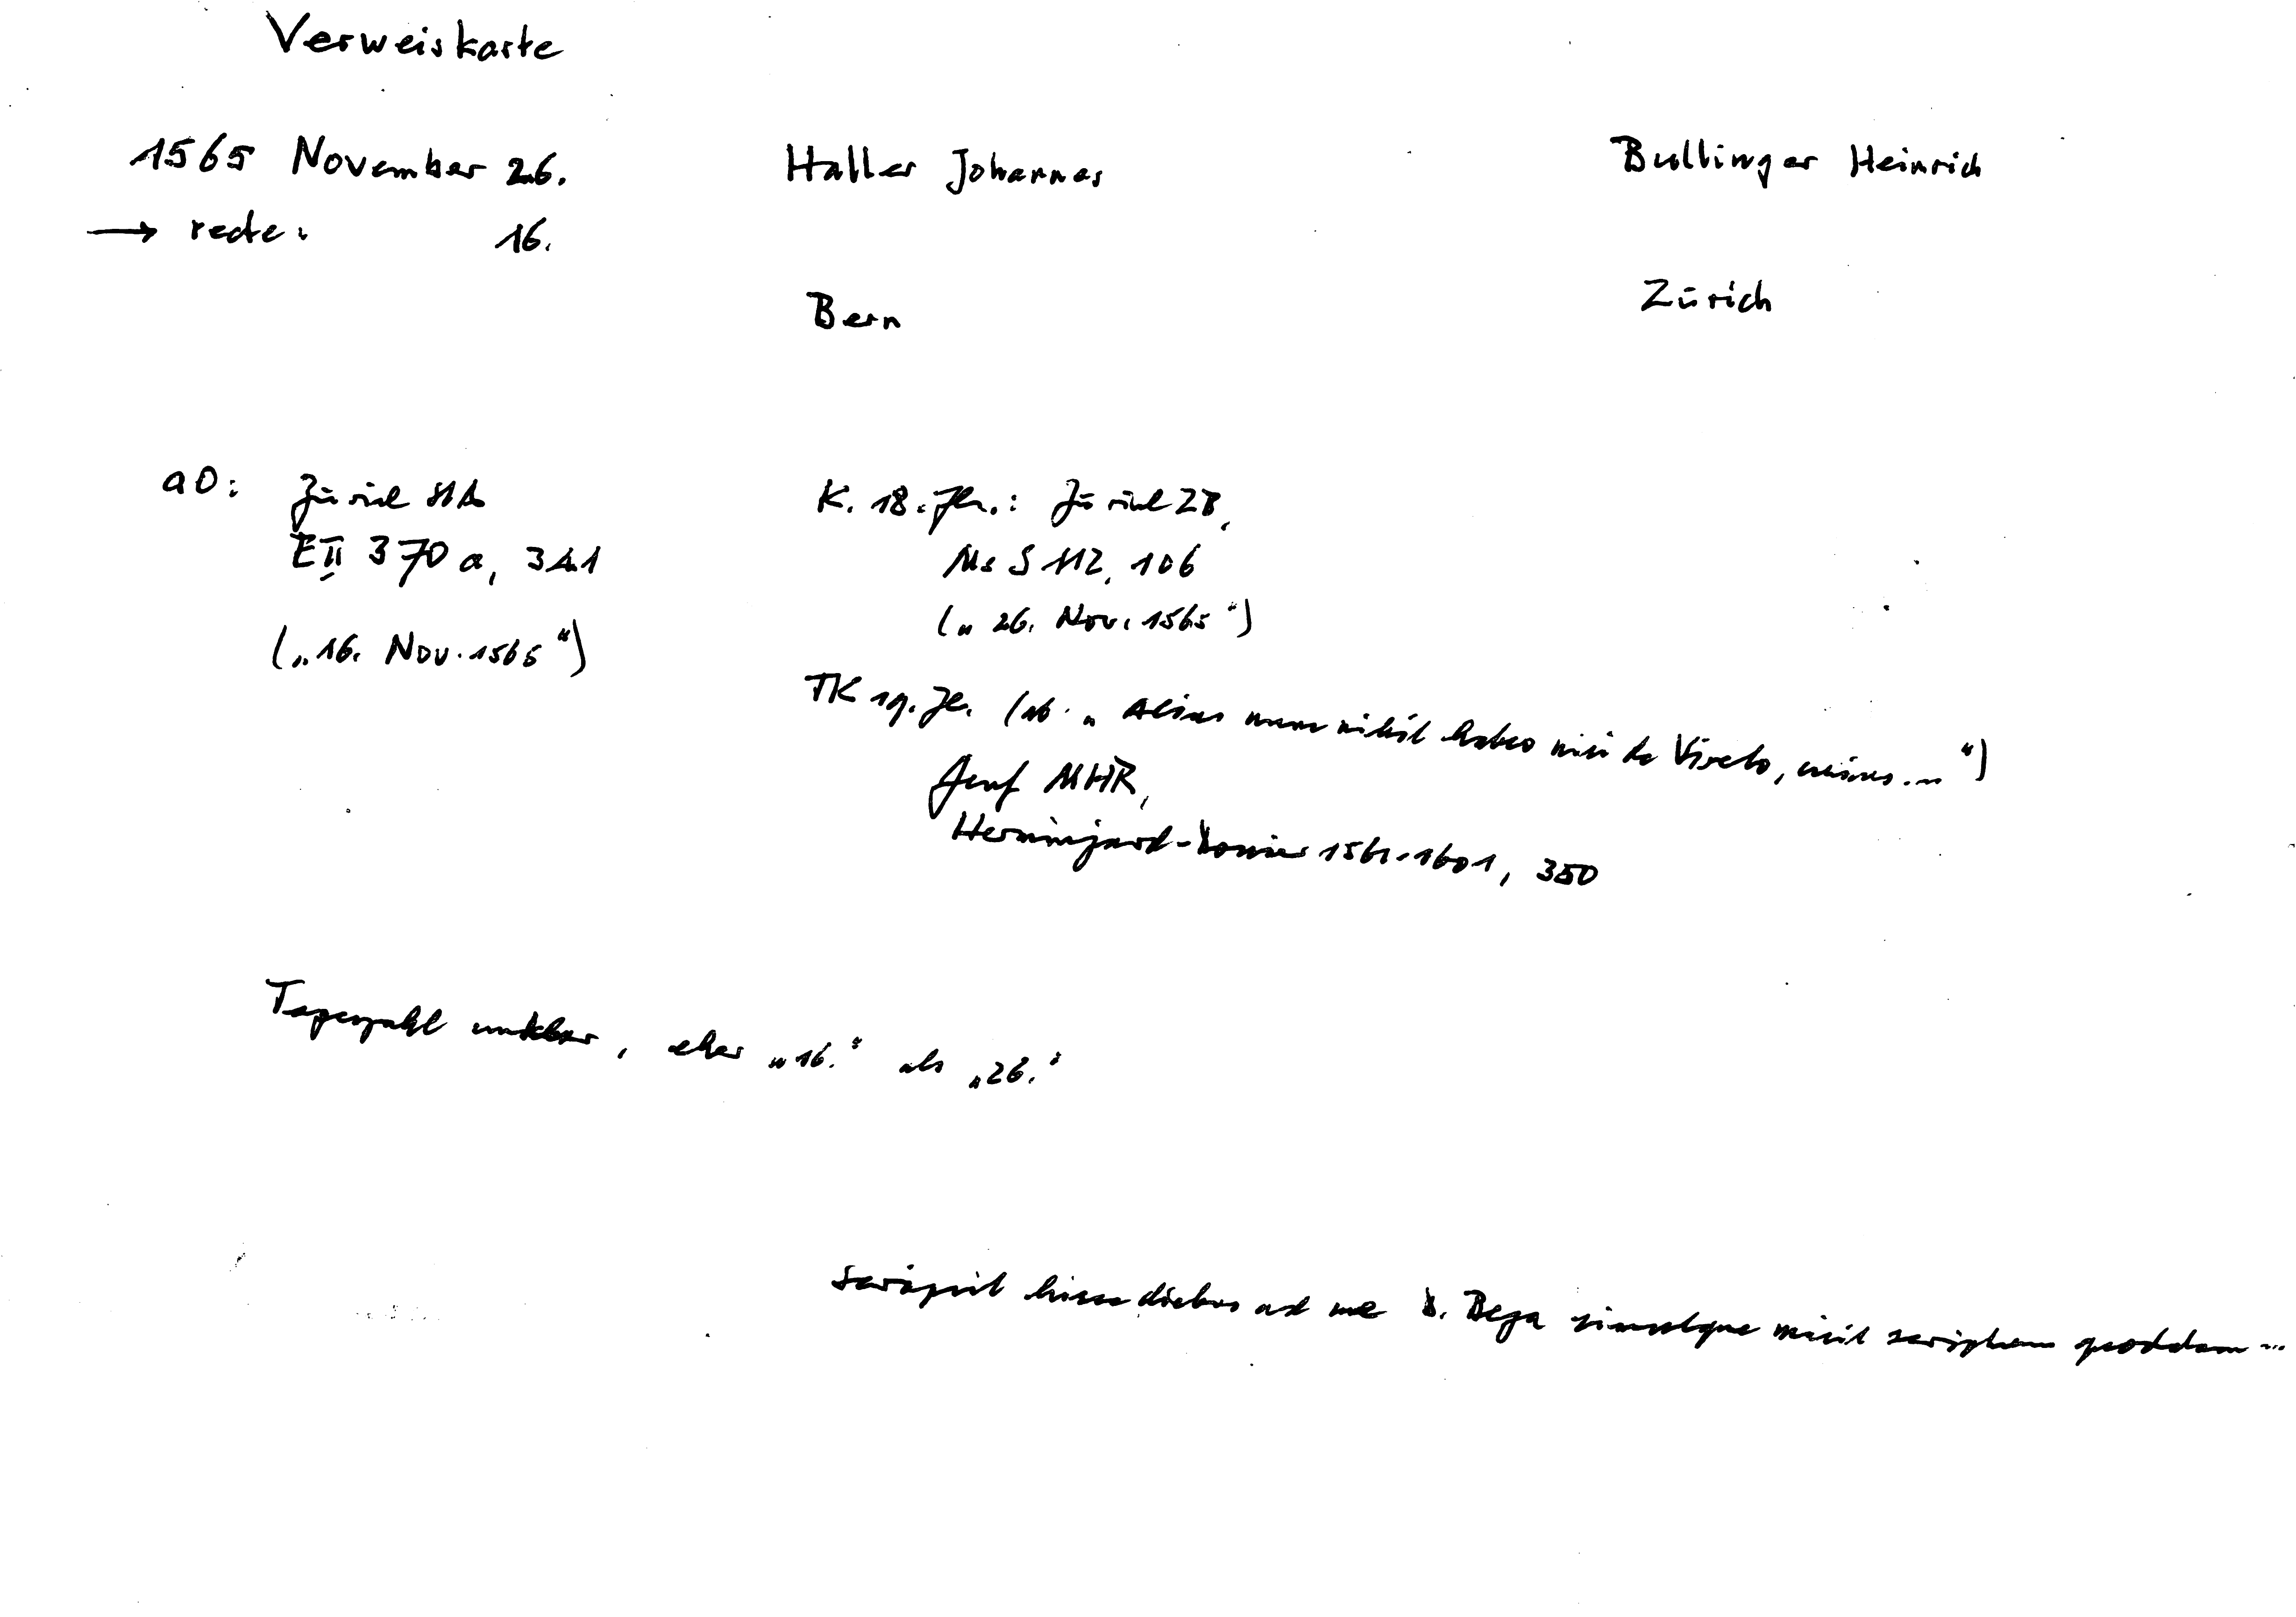 Verweiskarte
1565 November 26.
→ recte: 16.
Haller Johannes
Bern
Bullinger Heinrich
Zürich
aO: Zürich StA
E II 370 a, 341
("16. Nov. 1565")
K. 18. Jh.: Zürich ZB,
Ms S 112, 106
("26. Nov. 1565")
TK 19. Jh. (ab "Alias nunc nihil habeo nisi de Vireto, ...")
Genf MHR,
Herminjard-Dossier 1561-1601, 350
Tageszahl unklar, eher "16." als "26."
Scripsit hisce diebus ad me D. Beza simulque misit scriptum quoddam ...